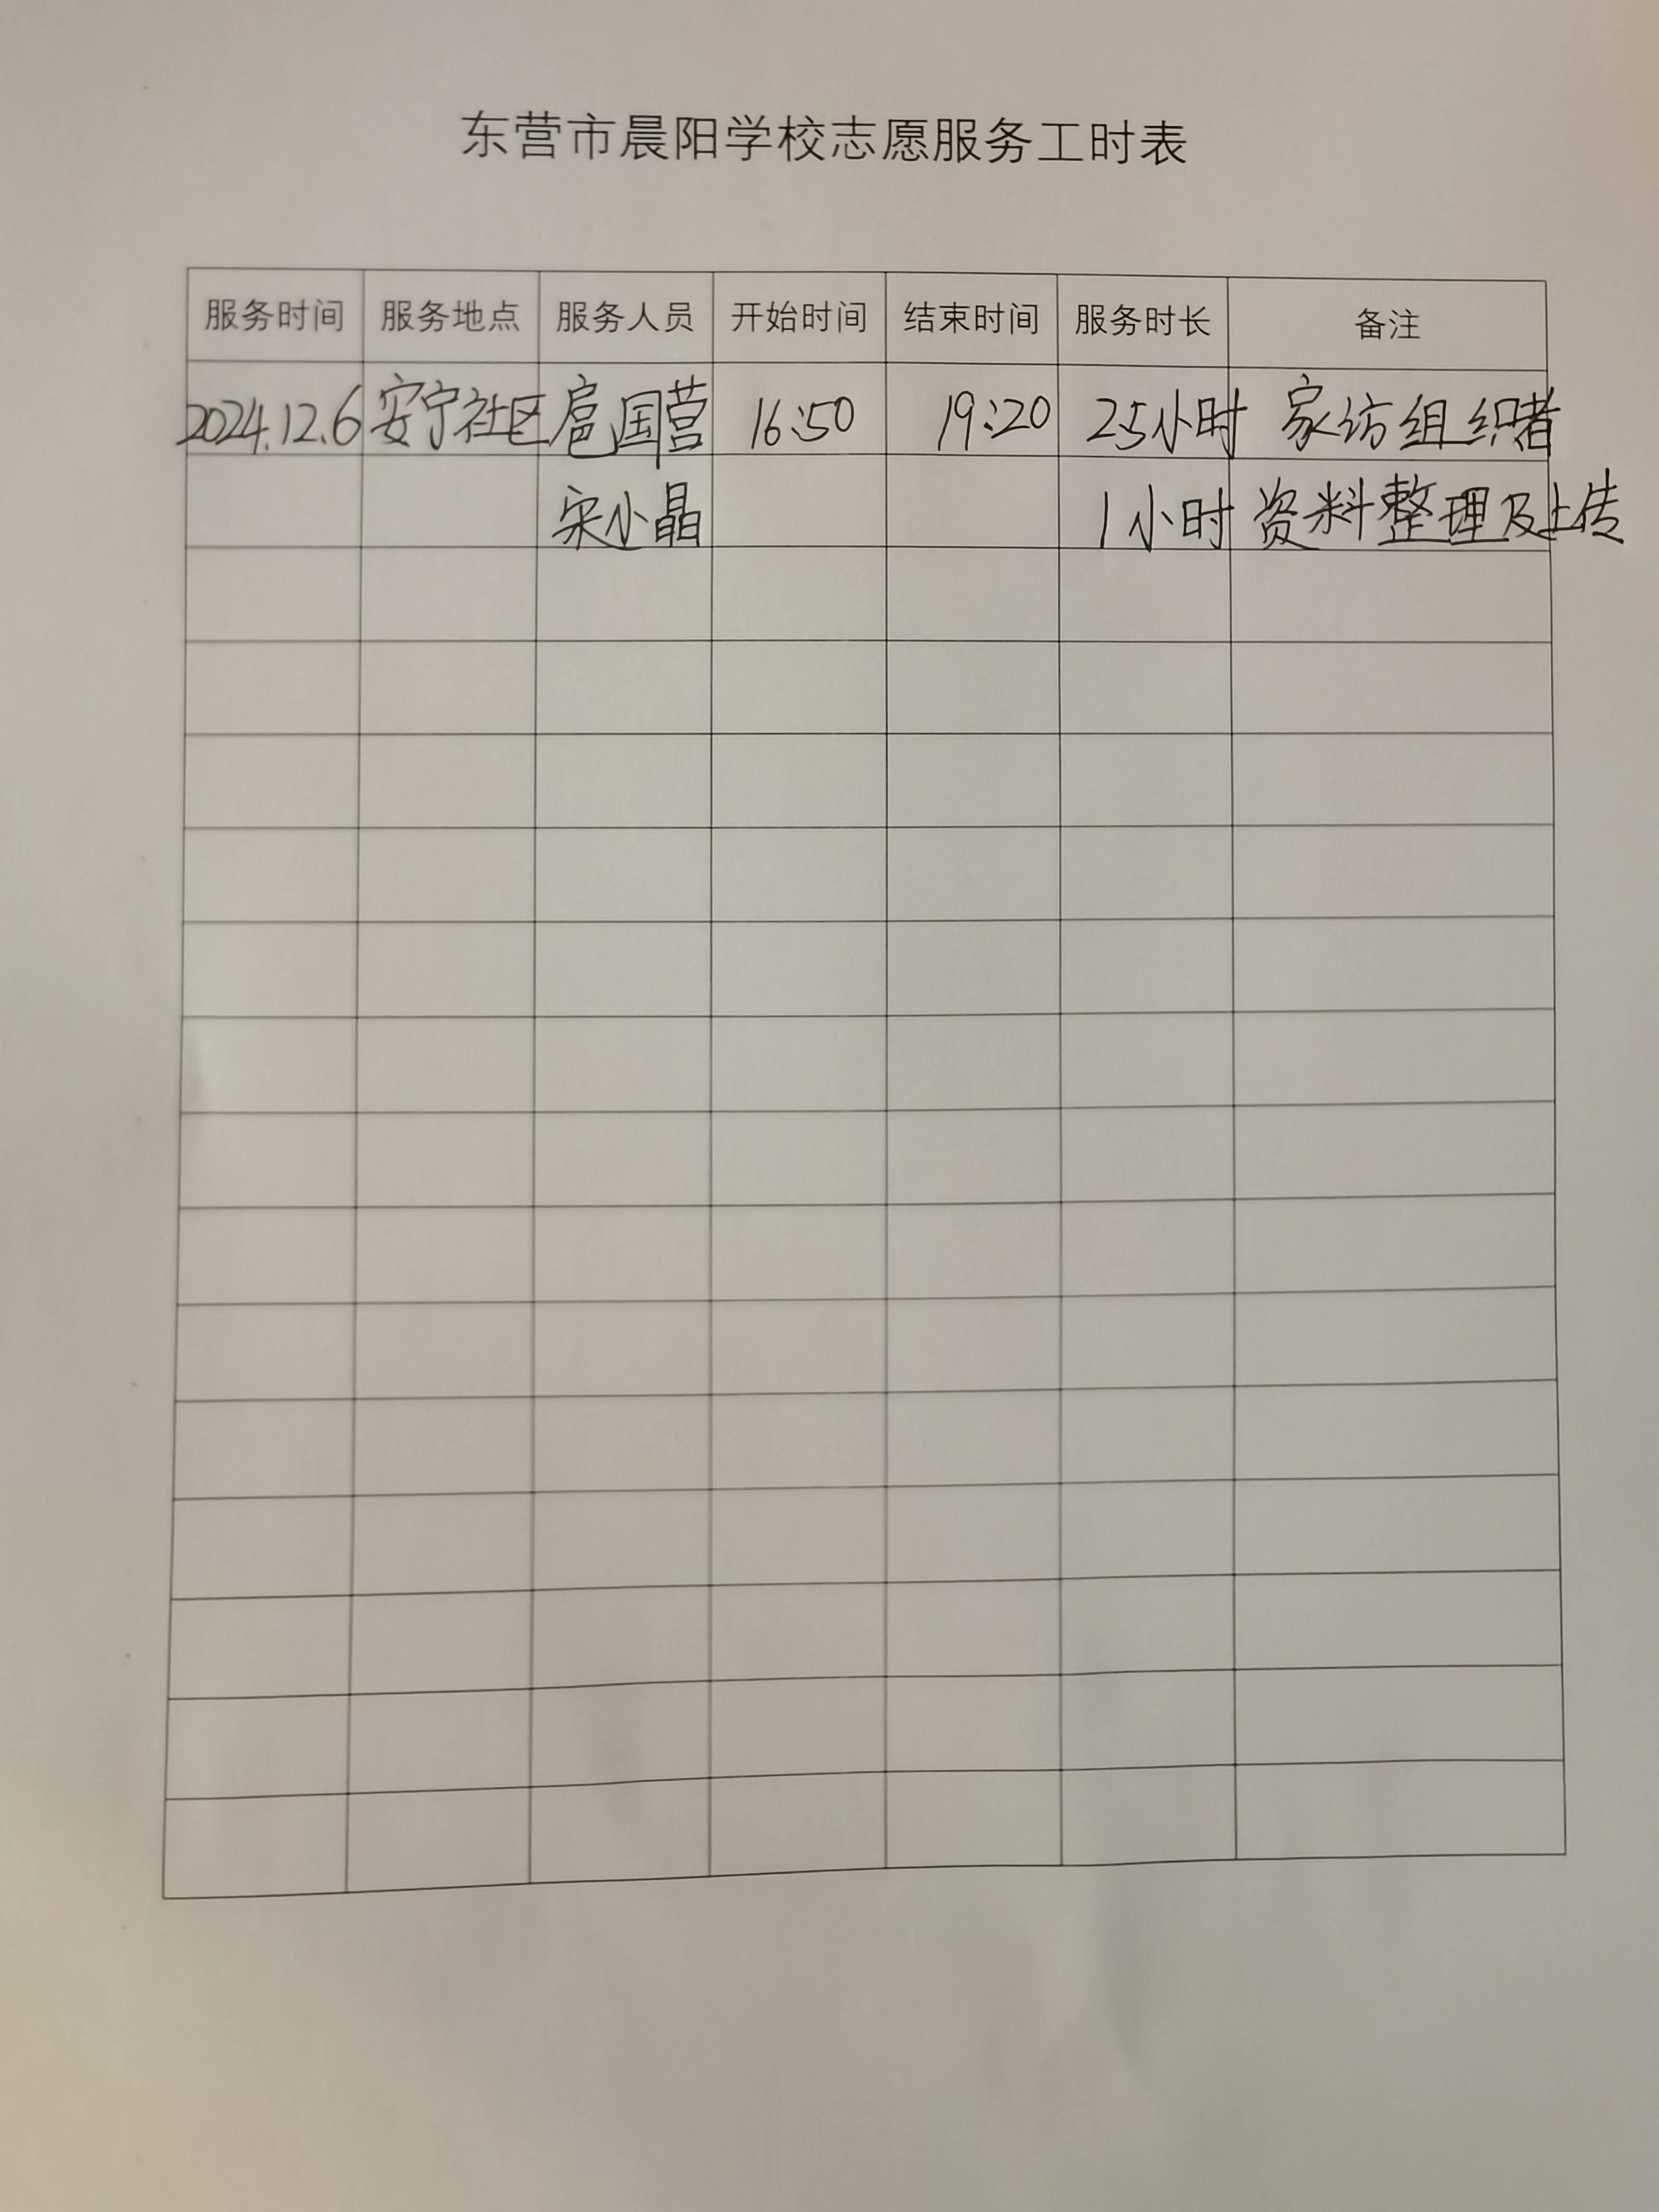 东营市晨阳学校志愿服务工时表
服务时间 服务地点 服务人员 开始时间 结束时间 服务时长 备注
2024.12.6 安宁社区 扈国营 16:50 19:20 2.5小时 家访组织者
宋小晶 1小时 资料整理及上传